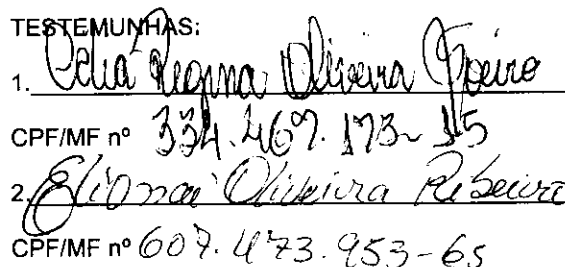 TESTEMUNHAS:
1. Celia Regina Oliveira
CPF/MF nº 334.467.173-15
2. Elionai Oliveira Ribeiro
CPF/MF nº 607.473.953-65